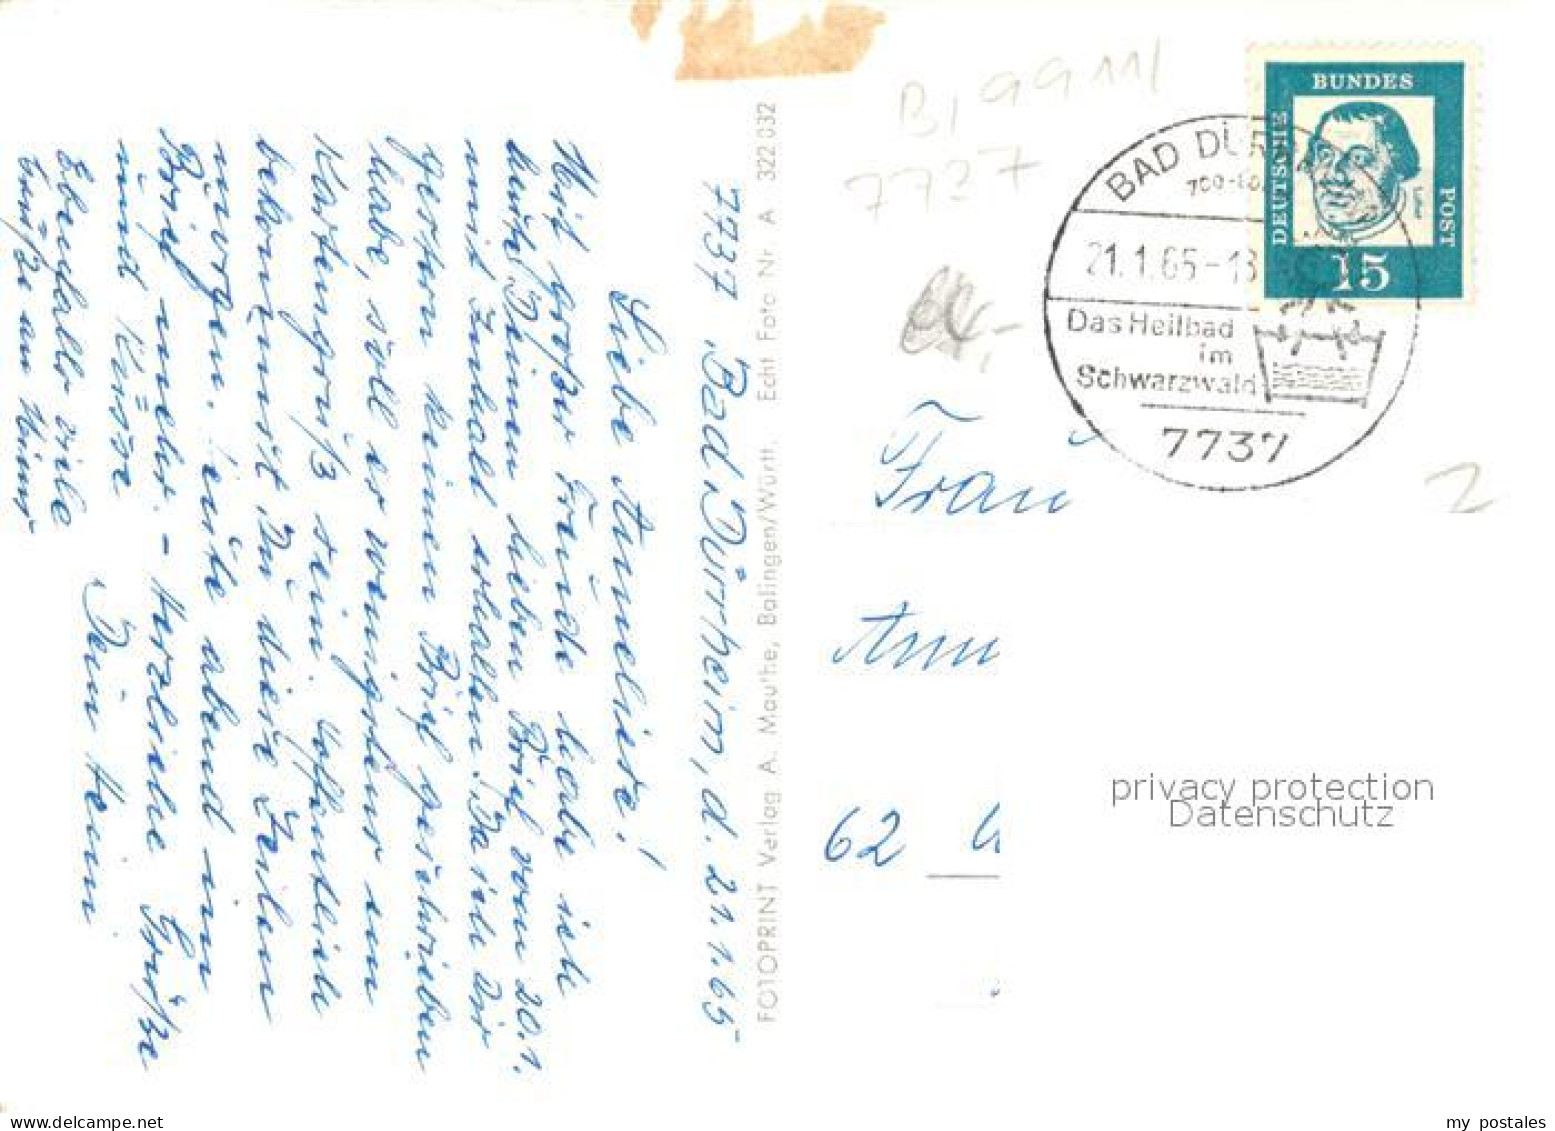 7737 Bad Dürrheim, d. 21.1.65
Liebe Anneliese!
Mit großer Freude habe ich
heute Deinen lieben Brief vom 20.1.
mit Inhalt erhalten. Da ich Dir
gestern keinen Brief geschrieben
habe, soll es wenigstens ein
Kartengruß sein. Hoffentlich
bekommst Du diese Zeilen
morgen. heute abend im
Brief mehr. – Herzliche Grüße
und Küsse
Dein Heini
Ebenfalls viele
Grüße an
FOTOPRINT Verlag A. Mauthe, Balingen/Württ. Echt Foto Nr. A 322 032
B, 9911/
7737
DEUTSCHE BUNDES POST
15
BAD DÜRR
21.1.65-18
Das Heilbad
im
Schwarzwald
7737
2
Frau
62
privacy protection
Datenschutz
my postales